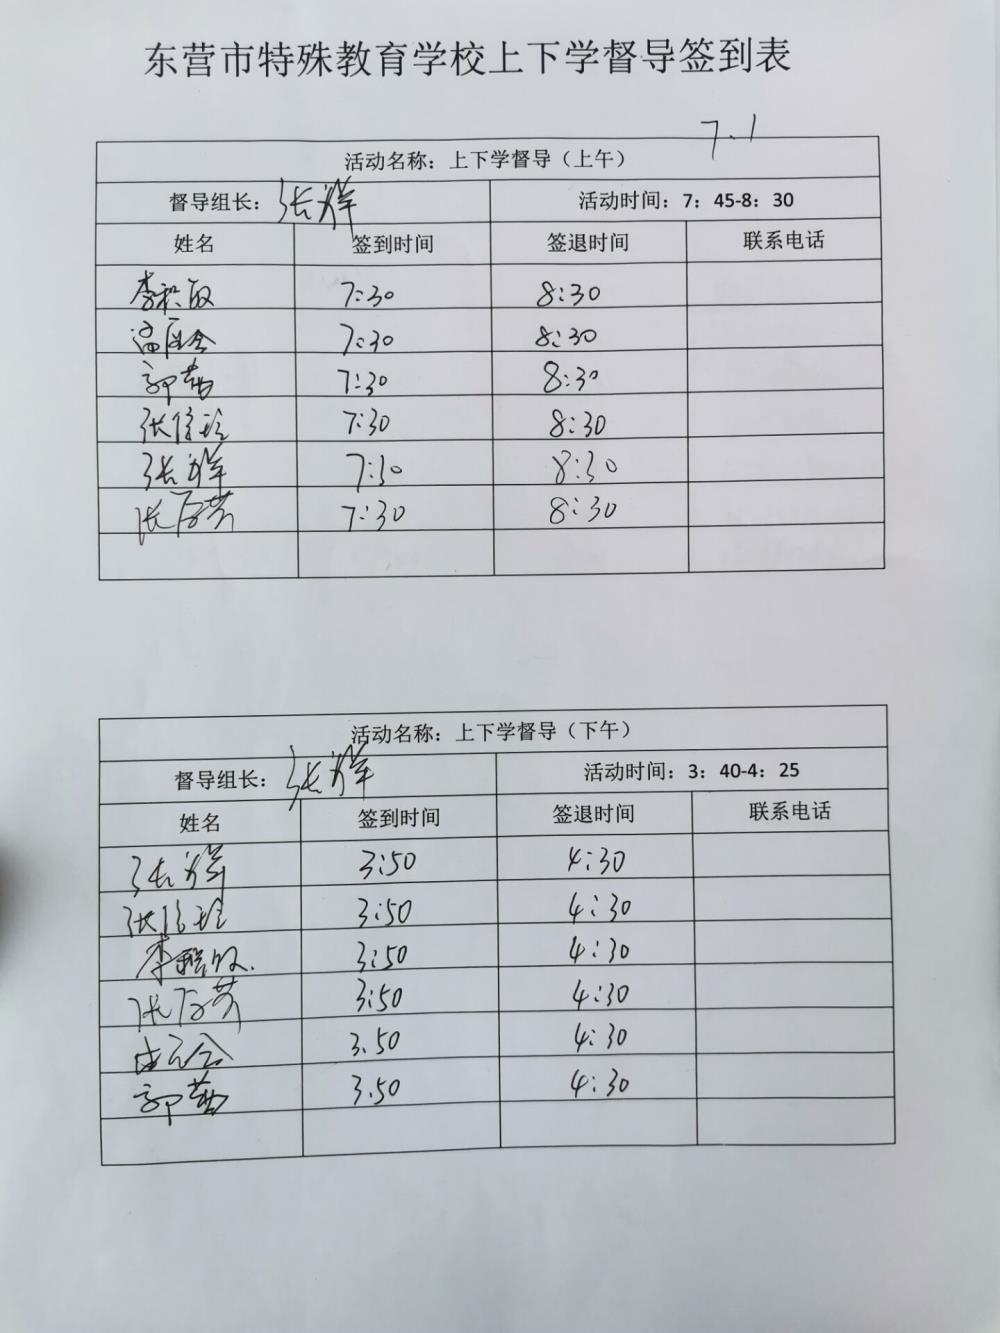 东营市特殊教育学校上下学督导签到表
7.1
活动名称：上下学督导（上午）
督导组长：张祥 活动时间：7：45-8：30
姓名 签到时间 签退时间 联系电话
7:30 8:30
7:30 8:30
郭茜 7:30 8:30
张 7:30 8:30
张祥 7:30 8:30
张 芳 7:30 8:30
活动名称：上下学督导（下午）
督导组长：张祥 活动时间：3：40-4：25
姓名 签到时间 签退时间 联系电话
张祥 3:50 4:30
张 3:50 4:30
李 3:50 4:30
张 芳 3:50 4:30
3.50 4:30
郭茜 3.50 4:30